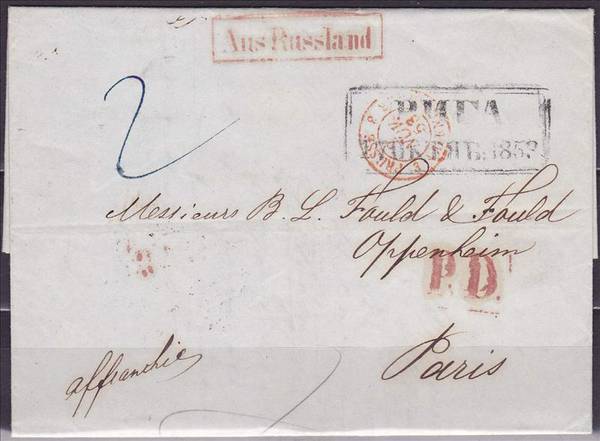 Aus Russland
2
РИГА
ОКТЯБ. 1853
Messieurs B. L. Fould & Fould
Oppenheim
P.D.
Paris
affranchie